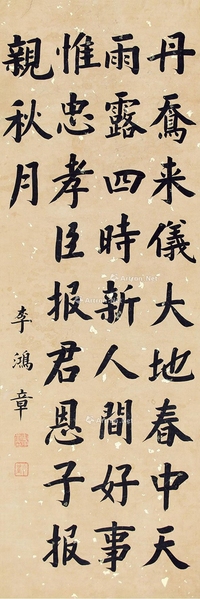 丹鳶来儀大地春中天
雨露四時新人間好事
惟忠孝臣报君恩子报
親秋月
李鴻章